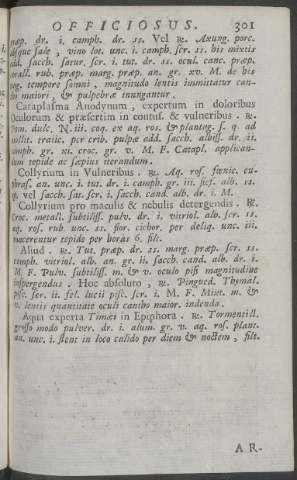 OFFICIOSUS. 301
præp. dr. i. camph. dr. ss. Vel ℞. Axung. porc.
absque sale, vino lot. unc. i. camph. scr. ss. bis mixtis
add. sacch. satur. scr. i. tut. dr. ss. ocul. canc. præp.
corall. rub. præp. marg. præp. an. gr. xv. M. de his
ung. tempore somni, magnitudo lentis immittatur can-
tho maiori, & palpebræ inungantur.
Cataplasma Anodynum, expertum in doloribus
Oculorum & præsertim in contus. & vulneribus. ℞.
Pom. dulc. N. iii. coq. ex aq. ros. & plantag. s. q. ad
mollit. traiic. per crib. pulpæ add. sacch. albiss. dr. ii.
camph. gr. xi. croc. gr. v. M. F. Catapl. applican-
dum tepide ac sæpius iterandum.
Collyrium in Vulneribus. ℞. Aq. ros. fœnic. eu-
phras. an. unc. i. tut. dr. i. camph. gr. iii. sief. alb. ss.
vel sacch. sat. scr. i. sacch. cand. alb. dr. i. M.
Collyrium pro maculis & nebulis detergendis. ℞.
Croc. metall. subtiliss. pulv. dr. i. vitriol. alb. scr. ss.
aq. ros. rub. unc. ss. fior. cichor. per deliq. unc. iii.
macerentur tepide per horas 6. filt.
Aliud. ℞. Tut. præp. dr. ss. marg. præp. scr. ss.
camph. vitriol. alb. an. gr. ii. sacch. cand. alb. dr. i.
M. F. Pulv. subtiliss. m. & v. oculo pisi magnitudine
inspergendus. Hoc absoluto, ℞. Pingued. Thymal.
pisc. scr. ii. fel. lucii pisc. scr. i. M. F. Mixt. m. &
v. lentis quantitate oculi cantho maior. indenda.
Aqua experta Timæi in Epiphora. ℞. Tormentill.
grosso modo pulver. dr. i. alum. gr. v. aq. ros. plant.
an. unc. i. stent in loco calido per diem & noctem, filt.
AR-